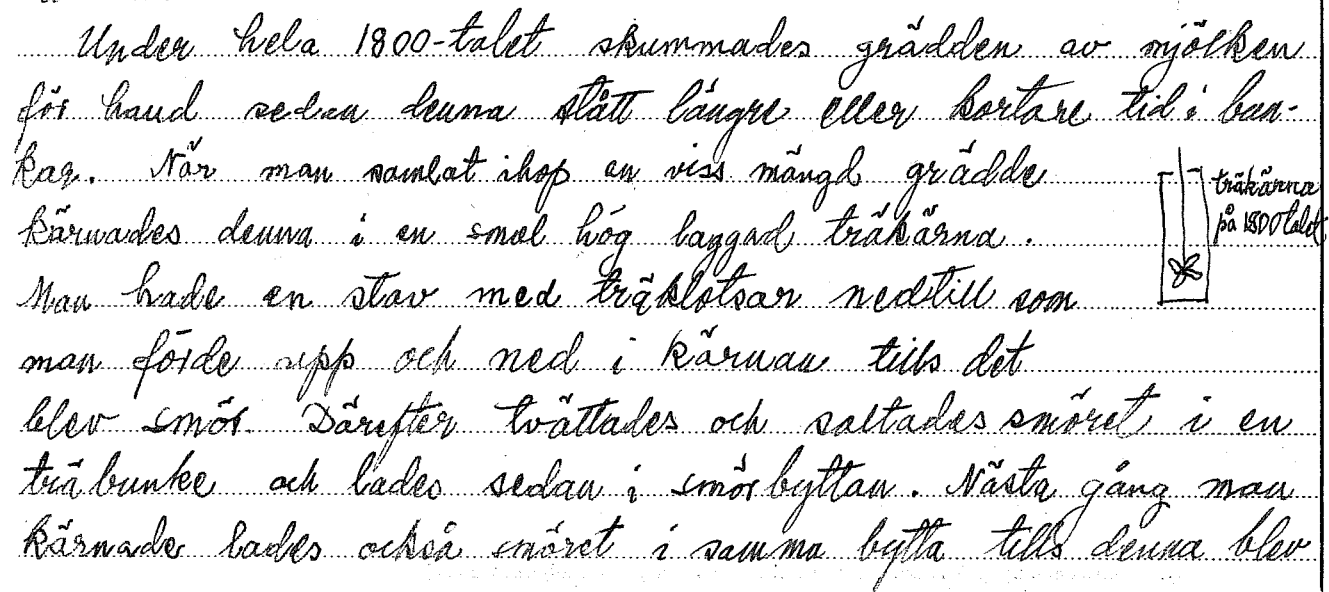 Under hela 1800-talet skummades grädden av mjölken
för hand sedan denna stått längre eller kortare tid i bun-
kar. När man samlat ihop en viss mängd grädde
kärnades denna i en smal hög laggad träkärna.
träkärna
på 1800talet
Man hade en stav med träklotsar nedtill som
man förde upp och ned i kärnan tills det
blev smör. Därefter tvättades och saltades smöret i en
träbunke och lades sedan i smörbyttan. Nästa gång man
kärnade lades också smöret i samma bytta tills denna blev